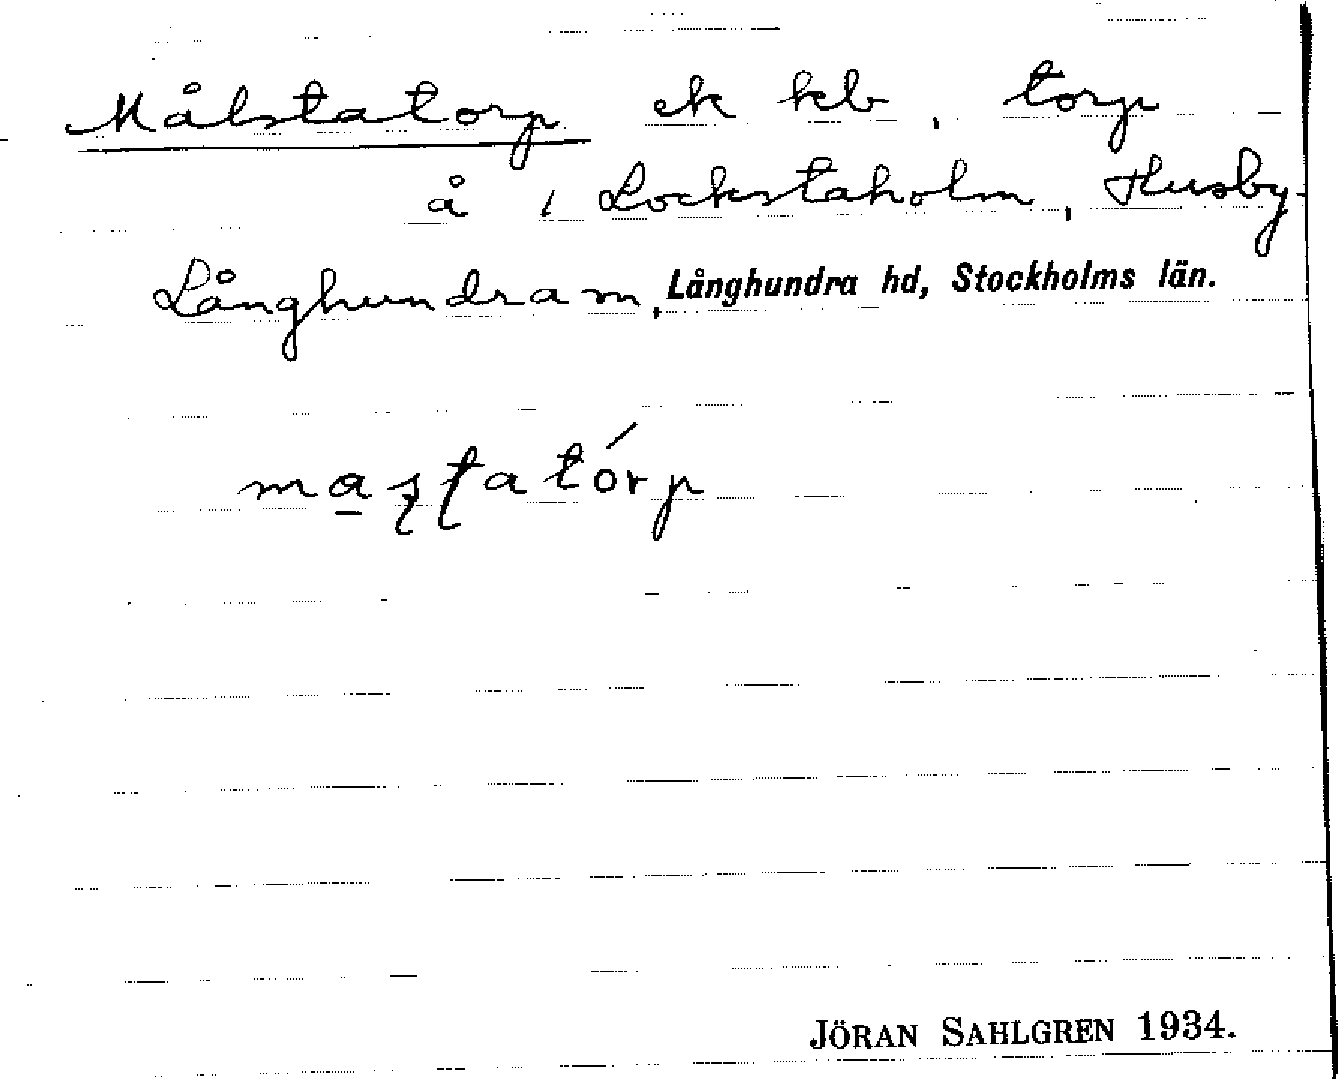 Målstatorp ek kb, torp
å 1 Lockstaholm, Husby-
Långhundra m, Långhundra hd, Stockholms län.
ma̲ʂʈatórp
JÖRAN SAHLGREN 1934.